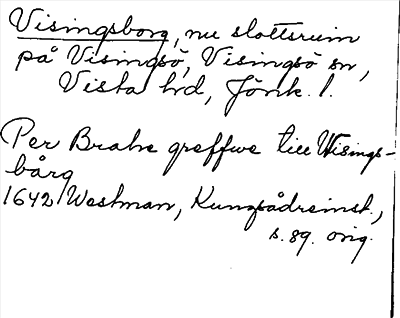 Visingsborg, nu slottsruin
på Visingsö, Visingsö sn,
Vista hd, Jönk. l.
Per Brahe greffwe till Wisings-
bårg
1642 Westman, Kungsådreinst.,
s. 89. orig.